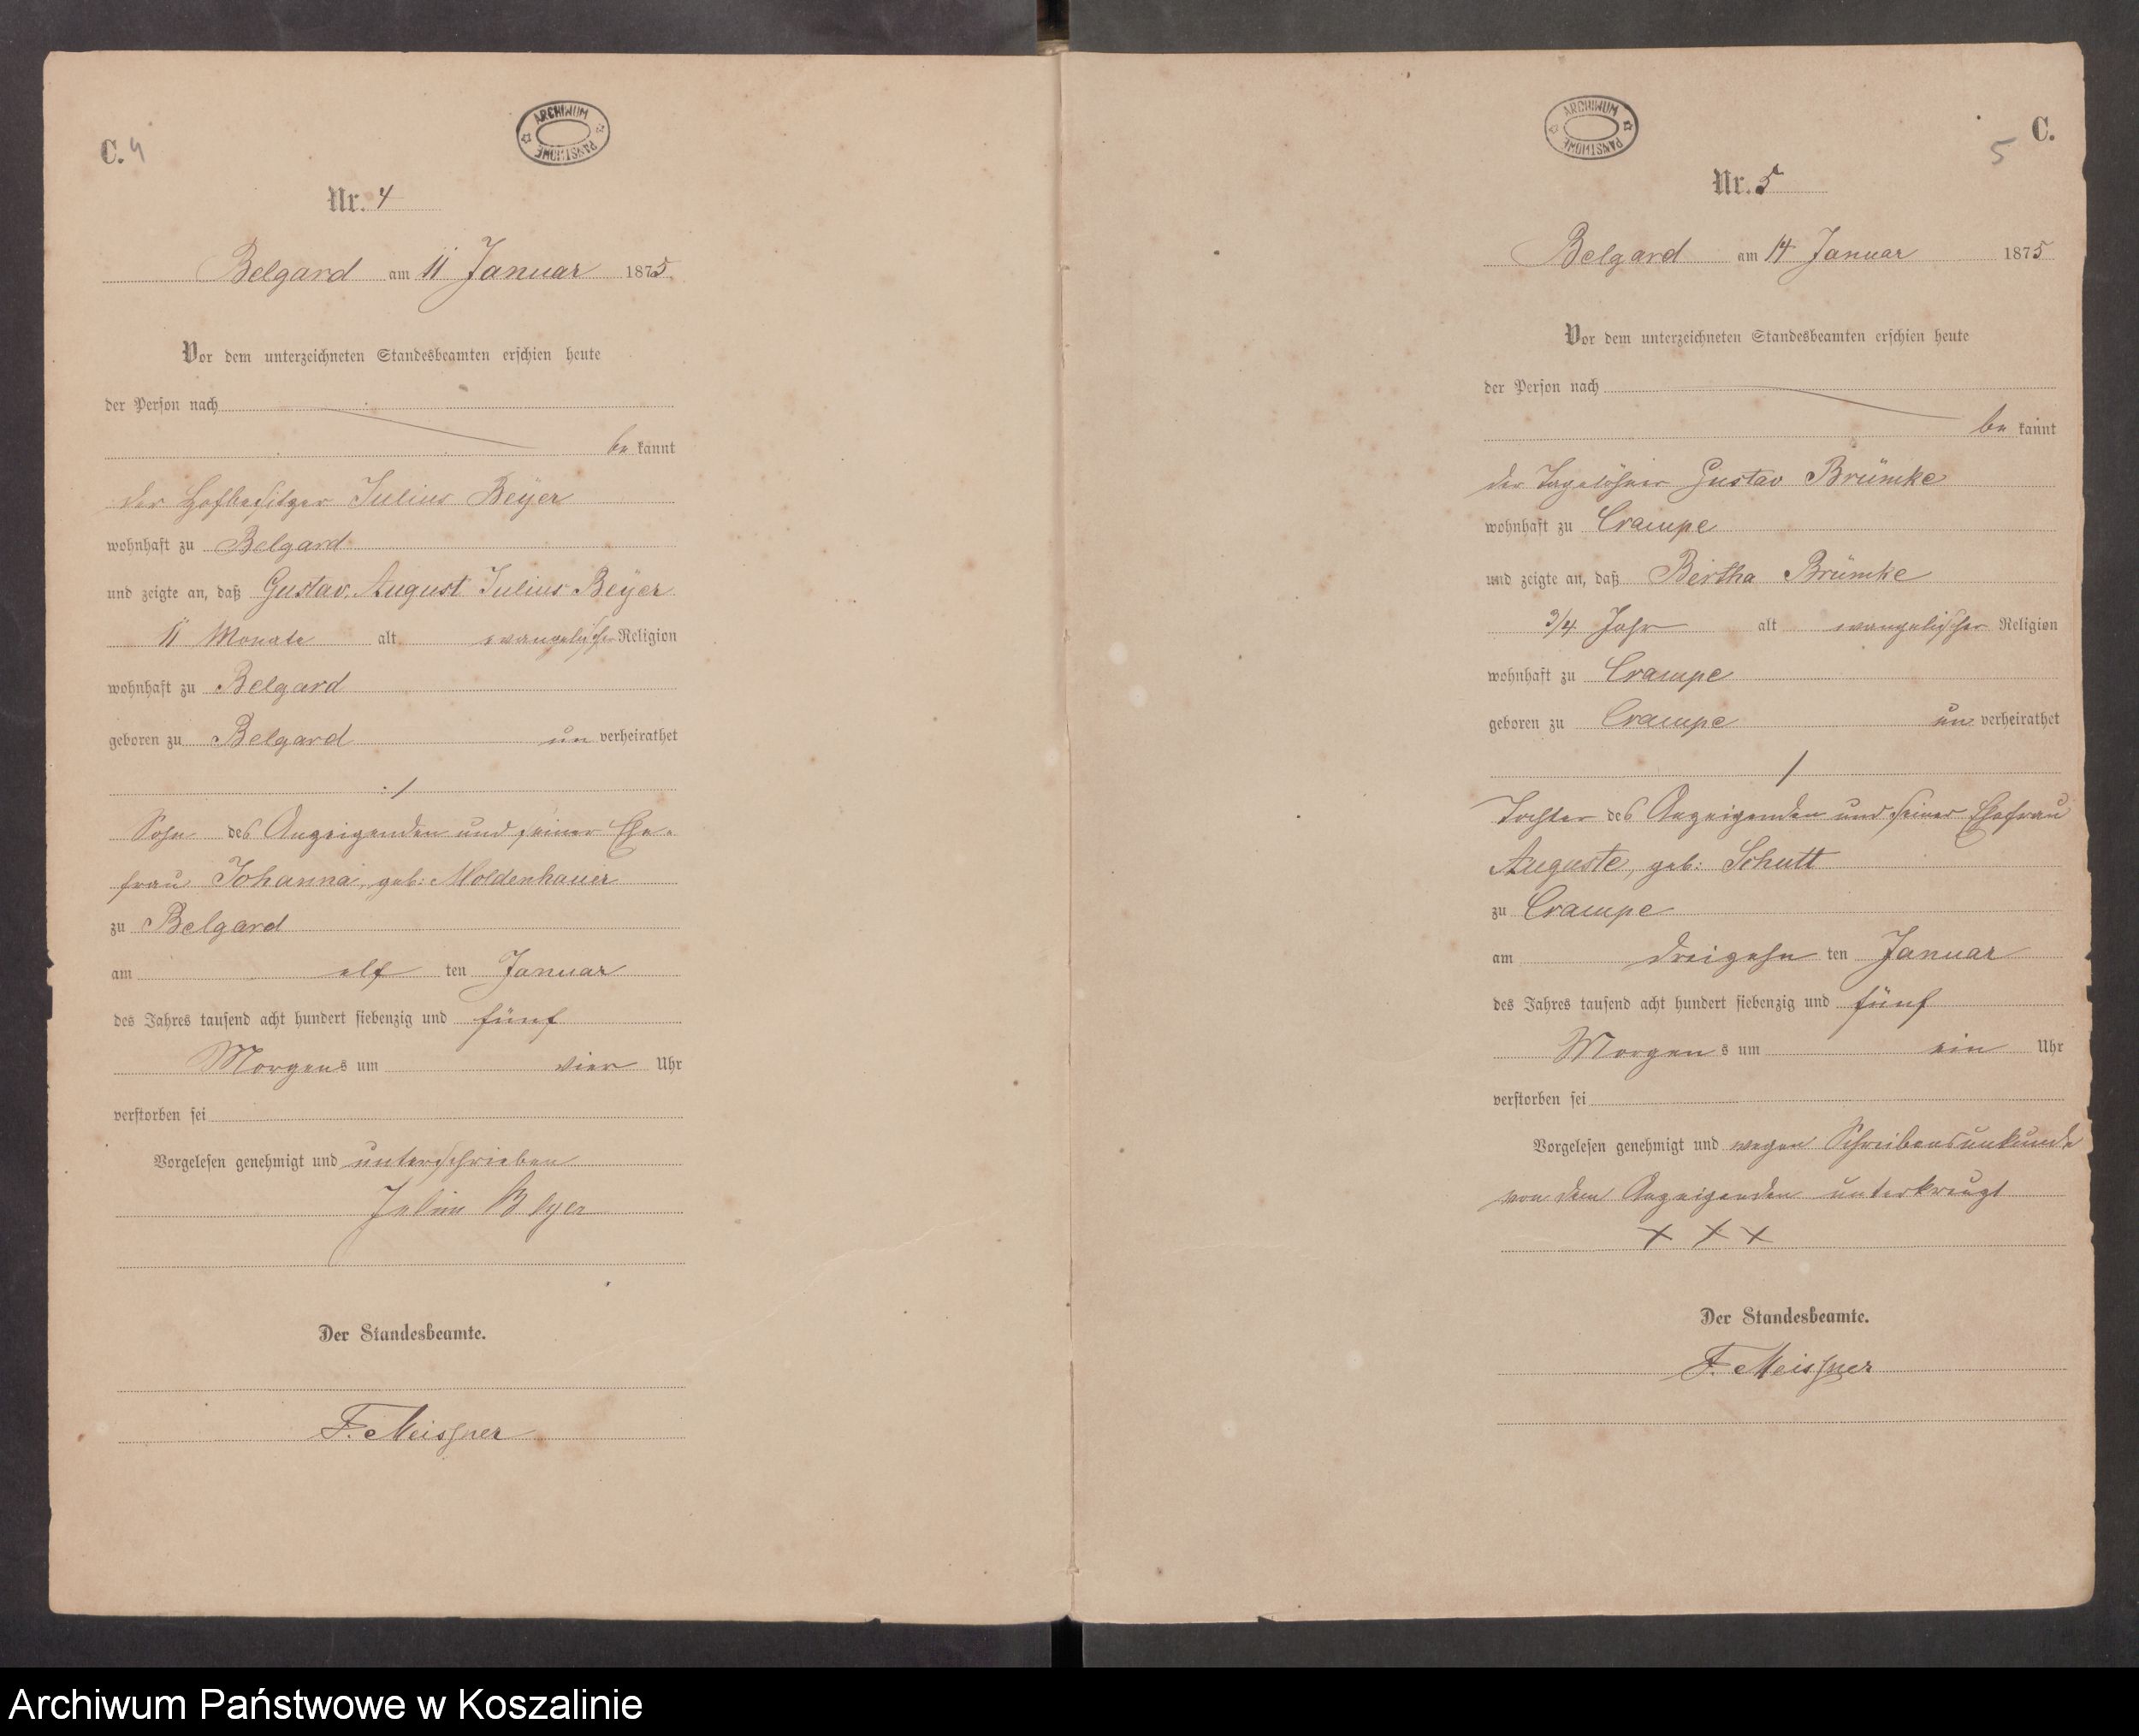 C. 4
ARCHIWUM PAŃSTWOWE
Nr. 4
Belgard am 11 Januar 1875.
Vor dem unterzeichneten Standesbeamten erschien heute
der Person nach
be kannt
der Hofbesitzer Julius Beyer
wohnhaft zu Belgard
und zeigte an, daß Gustav August Julius Beyer
11 Monate alt evangelischer Religion
wohnhaft zu Belgard
geboren zu Belgard un verheirathet
Sohn des Anzeigenden und seiner Ehe-
frau Johanna, geb: Moldenhauer
zu Belgard
am elf ten Januar
des Jahres tausend acht hundert siebenzig und fünf
Morgens um vier Uhr
verstorben sei
Vorgelesen genehmigt und unterschrieben
Julius Beyer
Der Standesbeamte.
F. Meissner
ARCHIWUM PAŃSTWOWE
C.
5
Nr. 5
Belgard am 14 Januar 1875
Vor dem unterzeichneten Standesbeamten erschien heute
der Person nach
be kannt
der Tagelöhner Gustav Brümke
wohnhaft zu Crampe
und zeigte an, daß Bertha Brümke
3/4 Jahr alt evangelischer Religion
wohnhaft zu Crampe
geboren zu Crampe un verheirathet
Tochter des Anzeigenden und seiner Ehefrau
Auguste, geb: Schutt
zu Crampe
am dreizehn ten Januar
des Jahres tausend acht hundert siebenzig und fünf
Morgens um ein Uhr
verstorben sei
Vorgelesen genehmigt und wegen Schreibensunkunde
von dem Anzeigenden unterkreuzt
+ + +
Der Standesbeamte.
F. Meissner
Archiwum Państwowe w Koszalinie